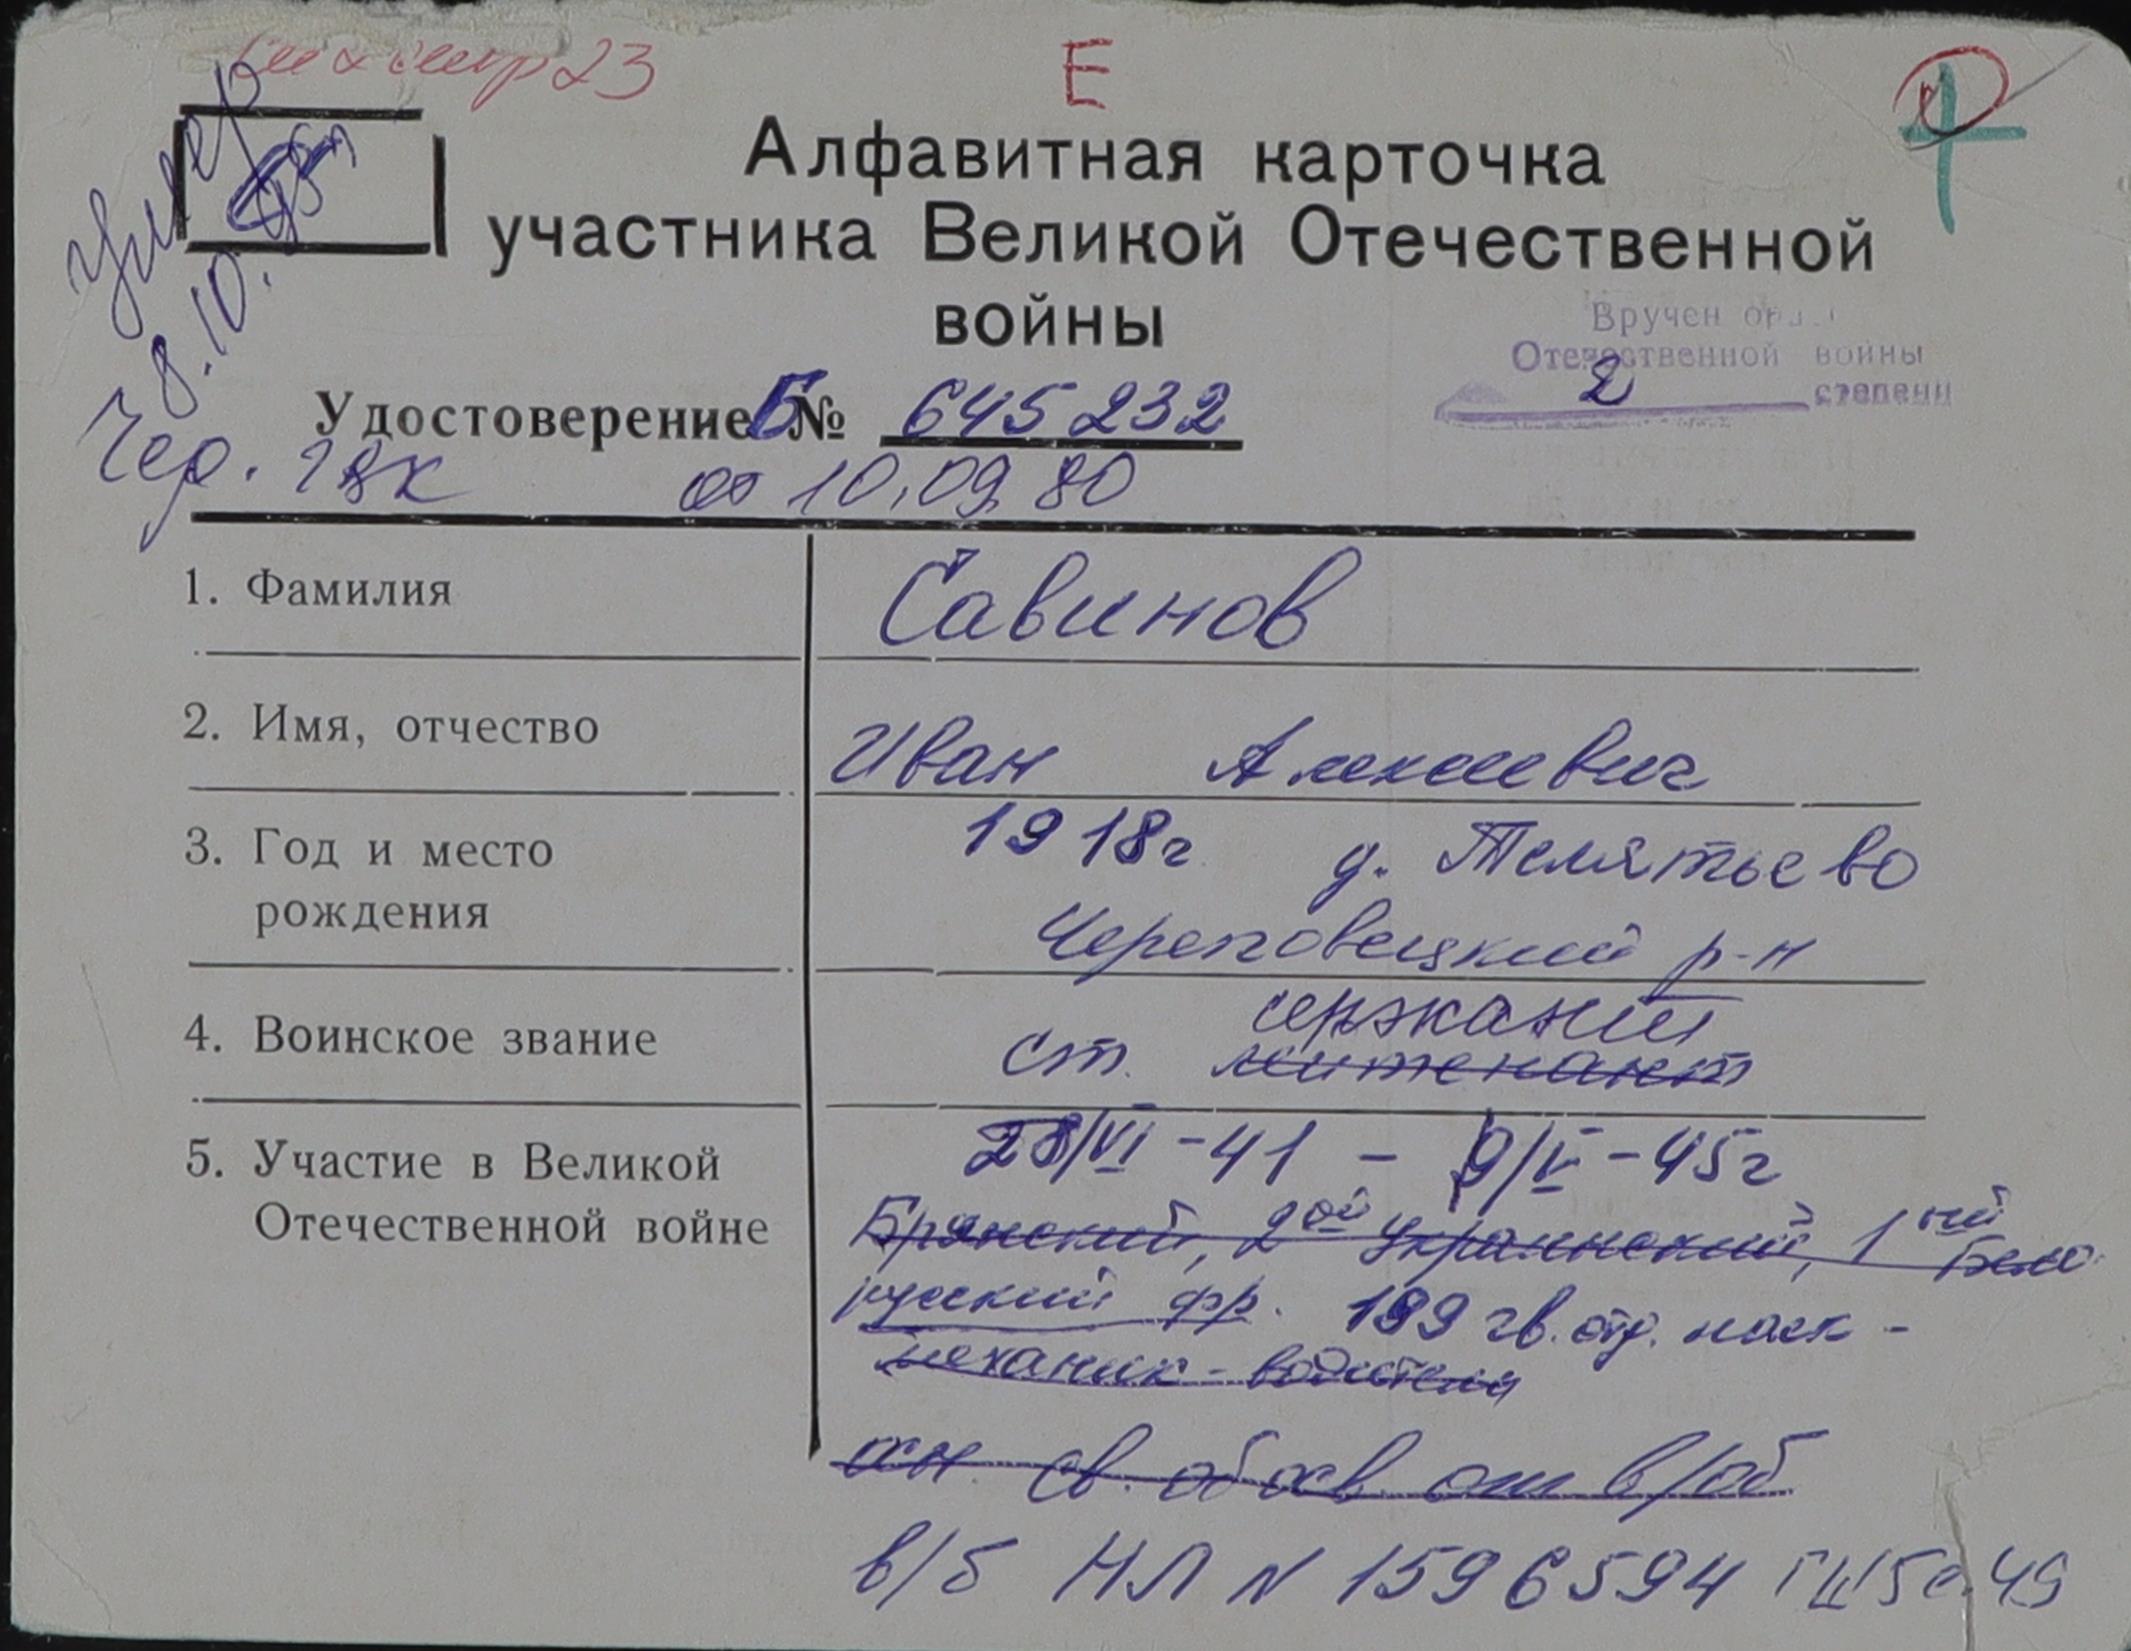 23
Е
Алфавитная карточка
участника Великой Отечественной
войны
умер
8.10.
Вручен орд
Отечественной войны
2 степени
Удостоверение Б № 645 232
Чер. ГВК от 10.09.80
1. Фамилия Савинов
2. Имя, отчество Иван Алексеевич
3. Год и место 1918г д. Телятьево
рождения Череповецкий р-н
4. Воинское звание ст. сержант лейтенант
5. Участие в Великой 28/VI-41 - 9/V-45г
Отечественной войне Брянский, 2ой Украинский, 1ый Бело
русский фр. 199 гв. отд.
механик-водителя
св. от в/об
в/б НЛ N 1596594 49